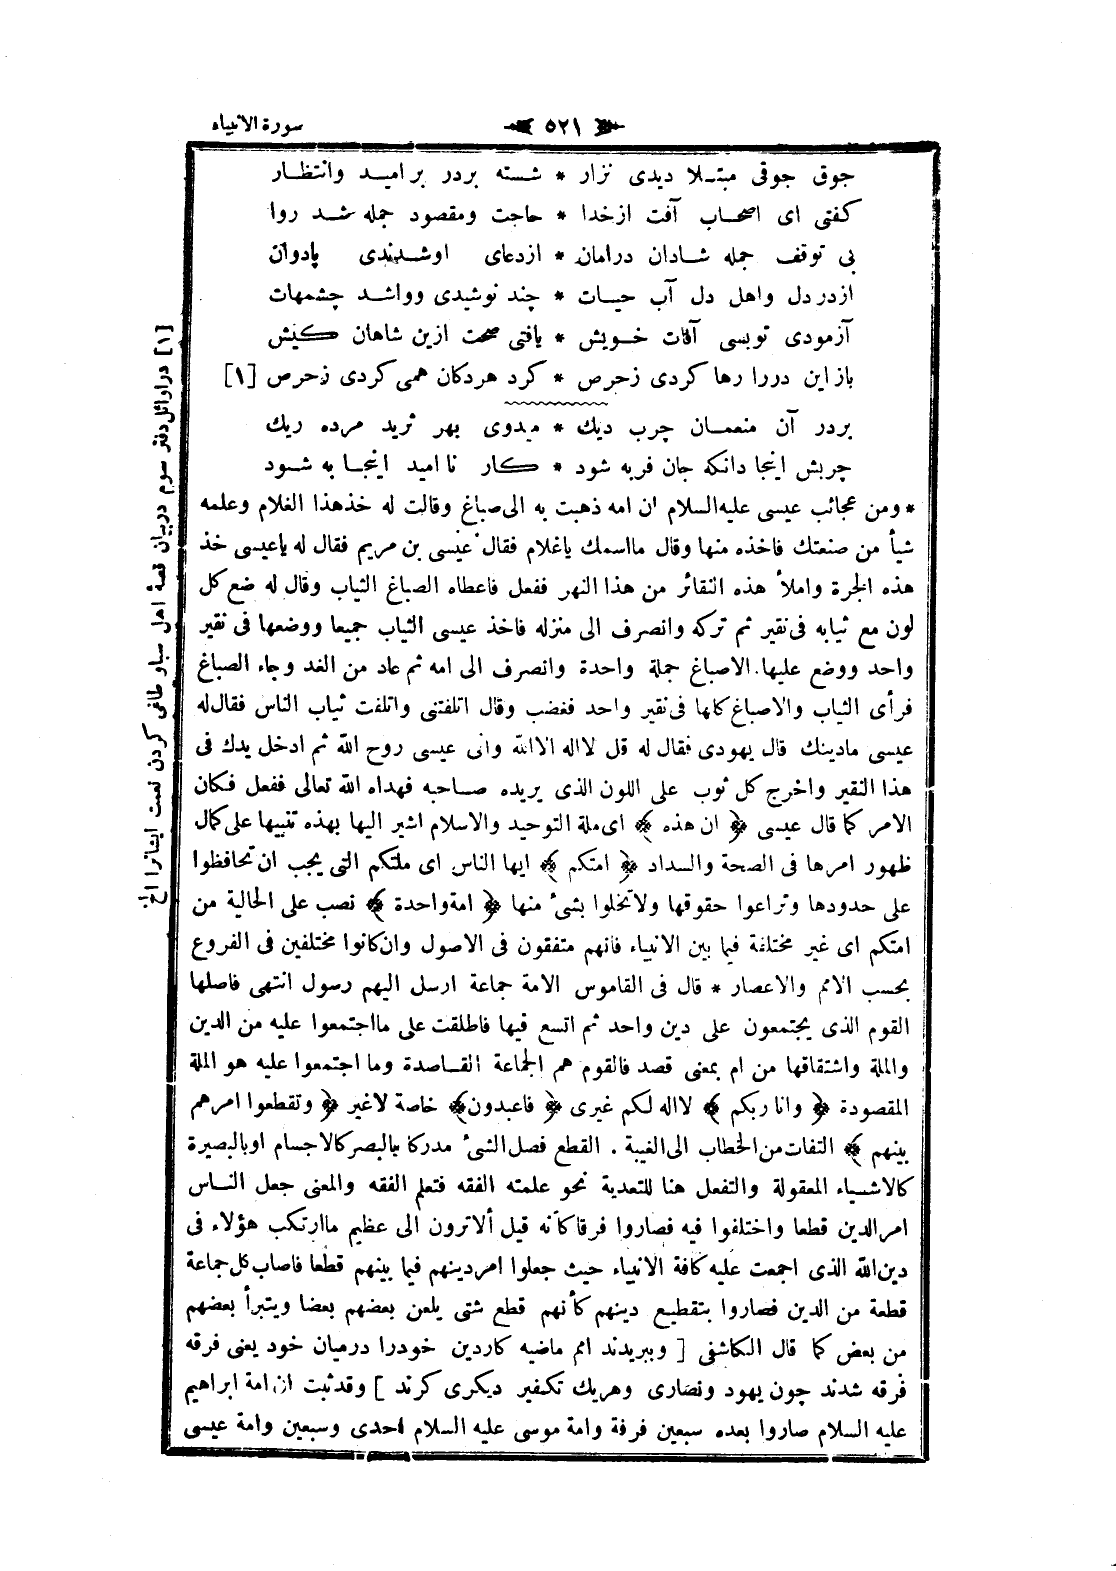 سورة الانبياء
٥٢١
جوق جوقى مبتلا ديدى نزار * شسته بردر بر اميد وانتظار
كفتى اى اصحاب آفت ازخدا * حاجت ومقصود جمله شد روا
بى توقف جمله شادان درامان * ازدعاى اوشدندى پادوان
ازدر دل واهل دل آب حيات * چند نوشيدى وواشد چشمهات
آزمودى توبسى آفات خويش * يافتى صحت ازين شاهان كيش
باز اين دررا رها كردى زحرص * كرد هردكان همى كردى زحرص [١]
بردر آن منعمان چرب ديك * ميدوى بهر ثريد مرده ريك
چربش اينجا دانكه جان فربه شود * كار نا اميد اينجا به شود
* ومن عجائب عيسى عليه السلام ان امه ذهبت به الى صباغ وقالت له خذهذا الغلام وعلمه
شيأ من صنعتك فاخذه منها وقال مااسمك ياغلام فقال عيسى بن مريم فقال له ياعيسى خذ
هذه الجرة واملأ هذه النقائر من هذا النهر ففعل فاعطاه الصباغ الثياب وقال له ضع كل
لون مع ثيابه فى نقير ثم تركه وانصرف الى منزله فاخذ عيسى الثياب جميعا ووضعها فى نقير
واحد ووضع عليها الاصباغ جملة واحدة وانصرف الى امه ثم عاد من الغد وجاء الصباغ
فرأى الثياب والاصباغ كلها فى نقير واحد فغضب وقال اتلفتنى واتلفت ثياب الناس فقال له
عيسى مادينك قال يهودى فقال له قل لااله الاالله وانى عيسى روح الله ثم ادخل يدك فى
هذا النقير واخرج كل ثوب على اللون الذى يريده صاحبه فهداه الله تعالى ففعل فكان
الامر كما قال عيسى ﴿ ان هذه ﴾ اى ملة التوحيد والاسلام اشير اليها بهذه تنبيها على كمال
ظهور امرها فى الصحة والسداد ﴿ امتكم ﴾ ايها الناس اى ملتكم التى يجب ان تحافظوا
على حدودها وتراعوا حقوقها ولاتخلوا بشئ منها ﴿ امة واحدة ﴾ نصب على الحالية من
امتكم اى غير مختلفة فيما بين الانبياء فانهم متفقون فى الاصول وان كانوا مختلفين فى الفروع
بحسب الامم والاعصار * قال فى القاموس الامة جماعة ارسل اليهم رسول انتهى فاصلها
القوم الذى يجتمعون على دين واحد ثم اتسع فيها فاطلقت على مااجتمعوا عليه من الدين
والملة واشتقاقها من ام بمعنى قصد فالقوم هم الجماعة القاصدة وما اجتمعوا عليه هو الملة
المقصودة ﴿ وانا ربكم ﴾ لااله لكم غيرى ﴿ فاعبدون ﴾ خاصة لاغير ﴿ وتقطعوا امرهم
بينهم ﴾ التفات من الخطاب الى الغيبة . القطع فصل الشئ مدركا بالبصر كالاجسام اوبالبصيرة
كالاشياء المعقولة والتفعل هنا للتعدية نحو علمته الفقه فتعلم الفقه والمعنى جعل الناس
امر الدين قطعا واختلفوا فيه فصاروا فرقا كأنه قيل ألاترون الى عظيم ماارتكب هؤلاء فى
دين الله الذى اجمعت عليه كافة الانبياء حيث جعلوا امر دينهم فيما بينهم قطعا فاصاب كل جماعة
قطعة من الدين فصاروا بتقطيع دينهم كأنهم قطع شتى يلعن بعضهم بعضا ويتبرأ بعضهم
من بعض كما قال الكاشفى [ وببريدند امم ماضيه كاردين خودرا درميان خود يعنى فرقه
فرقه شدند چون يهود ونصارى وهريك تكفير ديكرى كرند ] وقدثبت ان امة ابراهيم
عليه السلام صاروا بعده سبعين فرقة وامة موسى عليه السلام احدى وسبعين وامة عيسى
[١] در اوائل دفتر سوم دربيان قصهٔ اهل سبا وطاغى كردن نعمت ايشانرا الخ